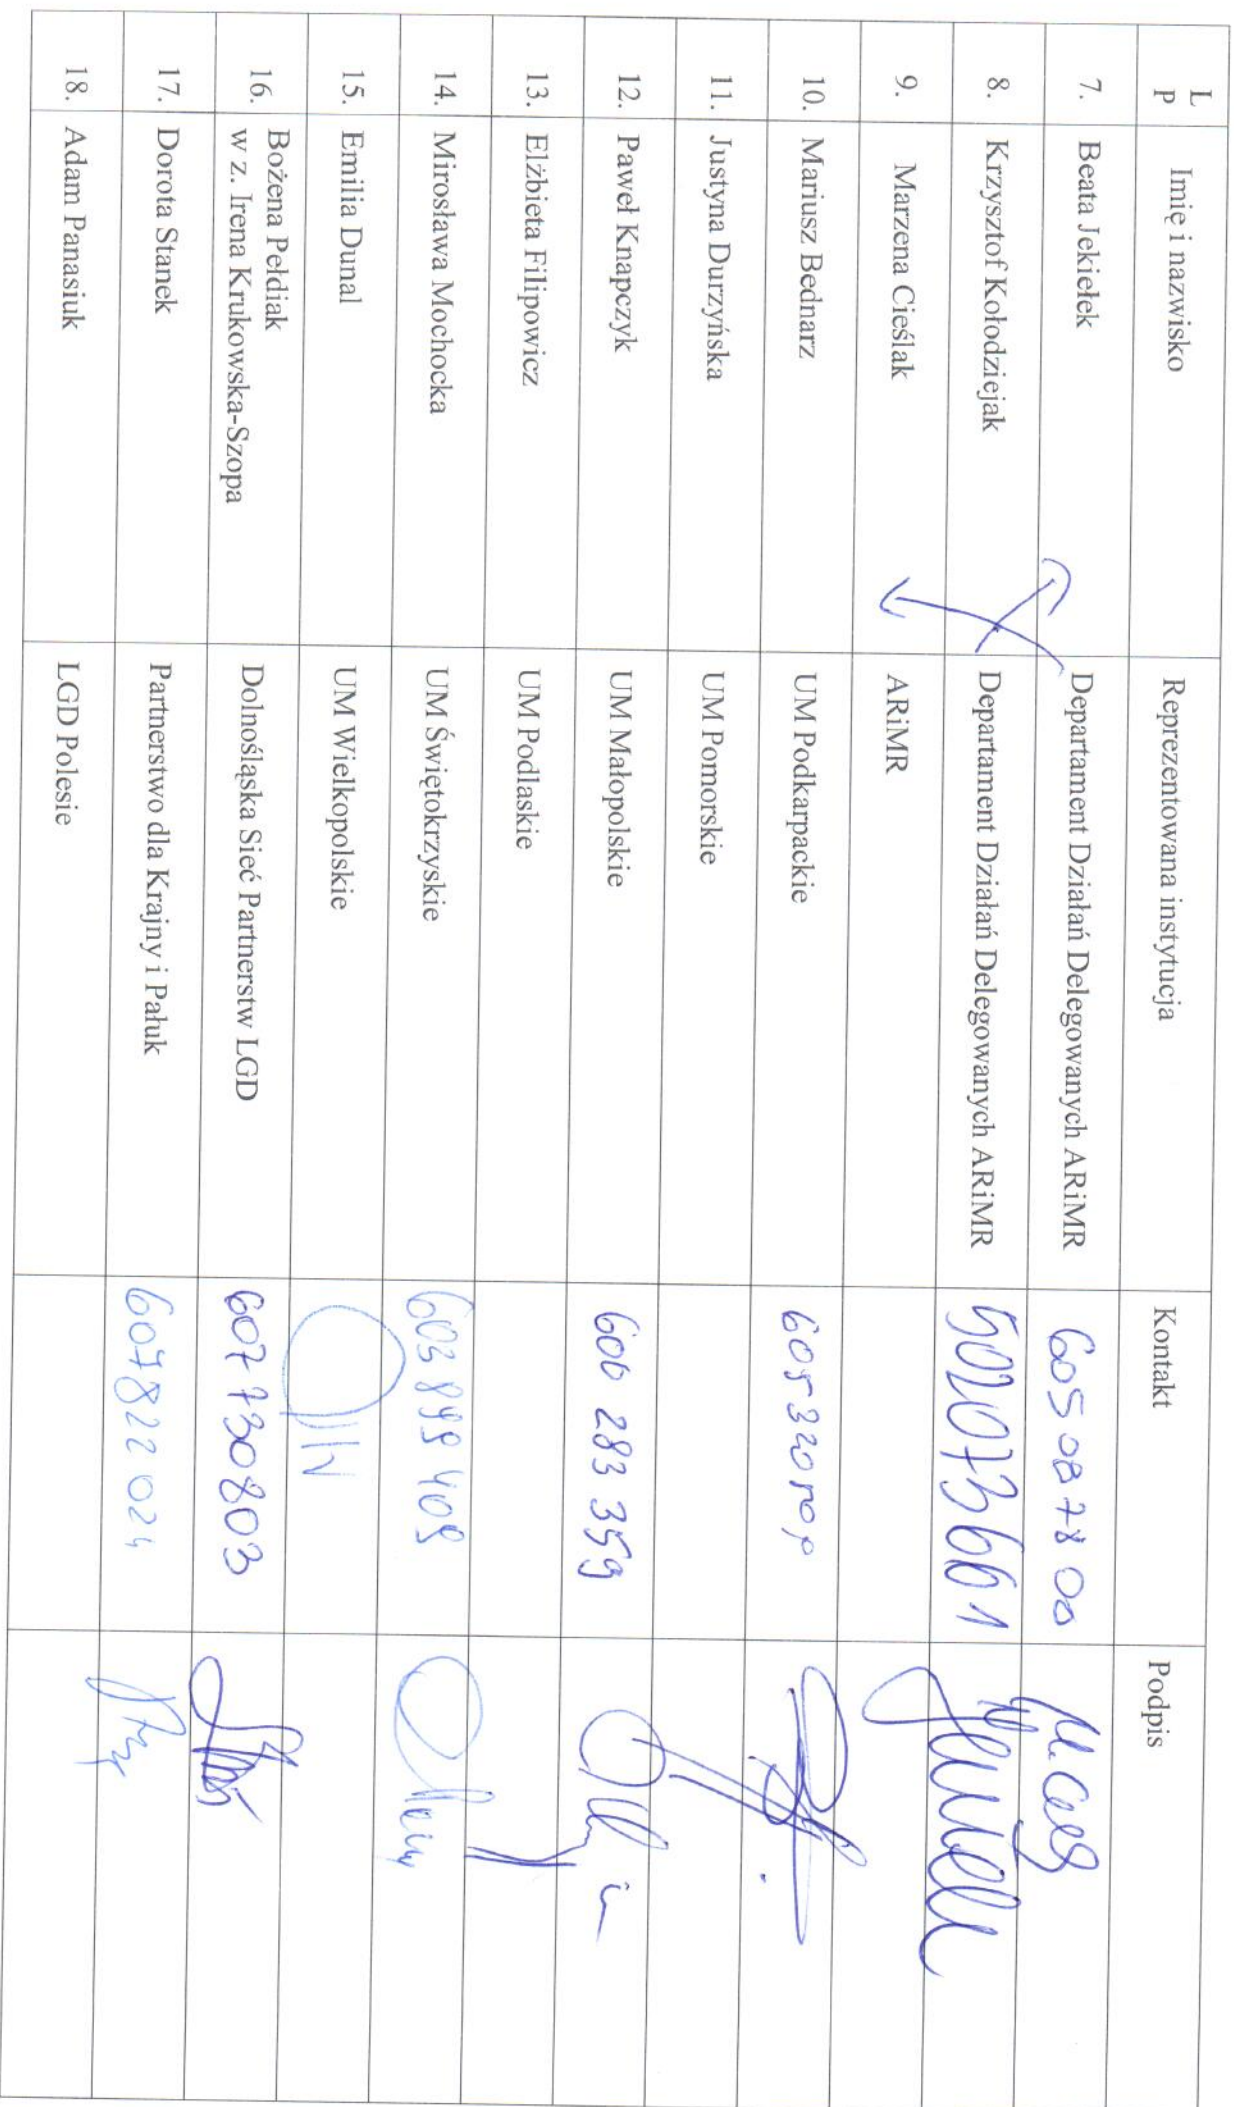 L P Imię i nazwisko Reprezentowana instytucja Kontakt Podpis
7. Beata Jekiełek Departament Działań Delegowanych ARiMR 605 08 78 00
8. Krzysztof Kołodziejak Departament Działań Delegowanych ARiMR 502073661
9. Marzena Cieślak ARiMR
10. Mariusz Bednarz UM Podkarpackie
11. Justyna Durzyńska UM Pomorskie
12. Paweł Knapczyk UM Małopolskie 600 283 359
13. Elżbieta Filipowicz UM Podlaskie
14. Mirosława Mochocka UM Świętokrzyskie
15. Emilia Dunal UM Wielkopolskie
16. Bożena Pełdiak
w z. Irena Krukowska-Szopa Dolnośląska Sieć Partnerstw LGD 607 730 803
17. Dorota Stanek Partnerstwo dla Krajny i Pałuk 607 822 024
18. Adam Panasiuk LGD Polesie